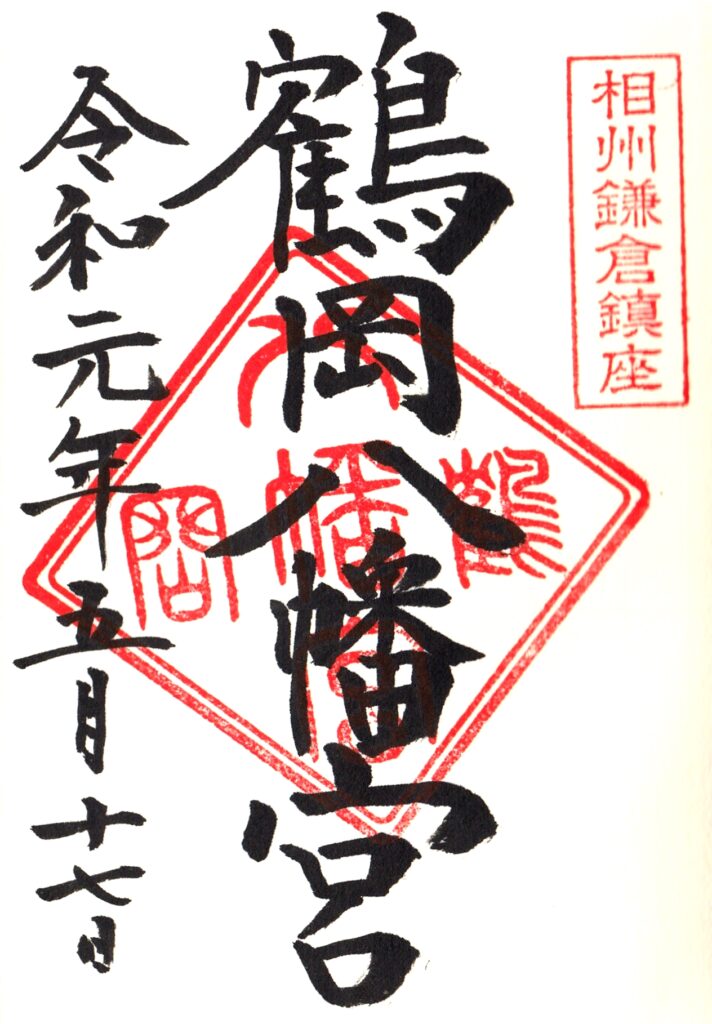 相州鎌倉鎮座
鶴岡八幡宮
令和元年五月十七日
鶴
八幡宮
岡